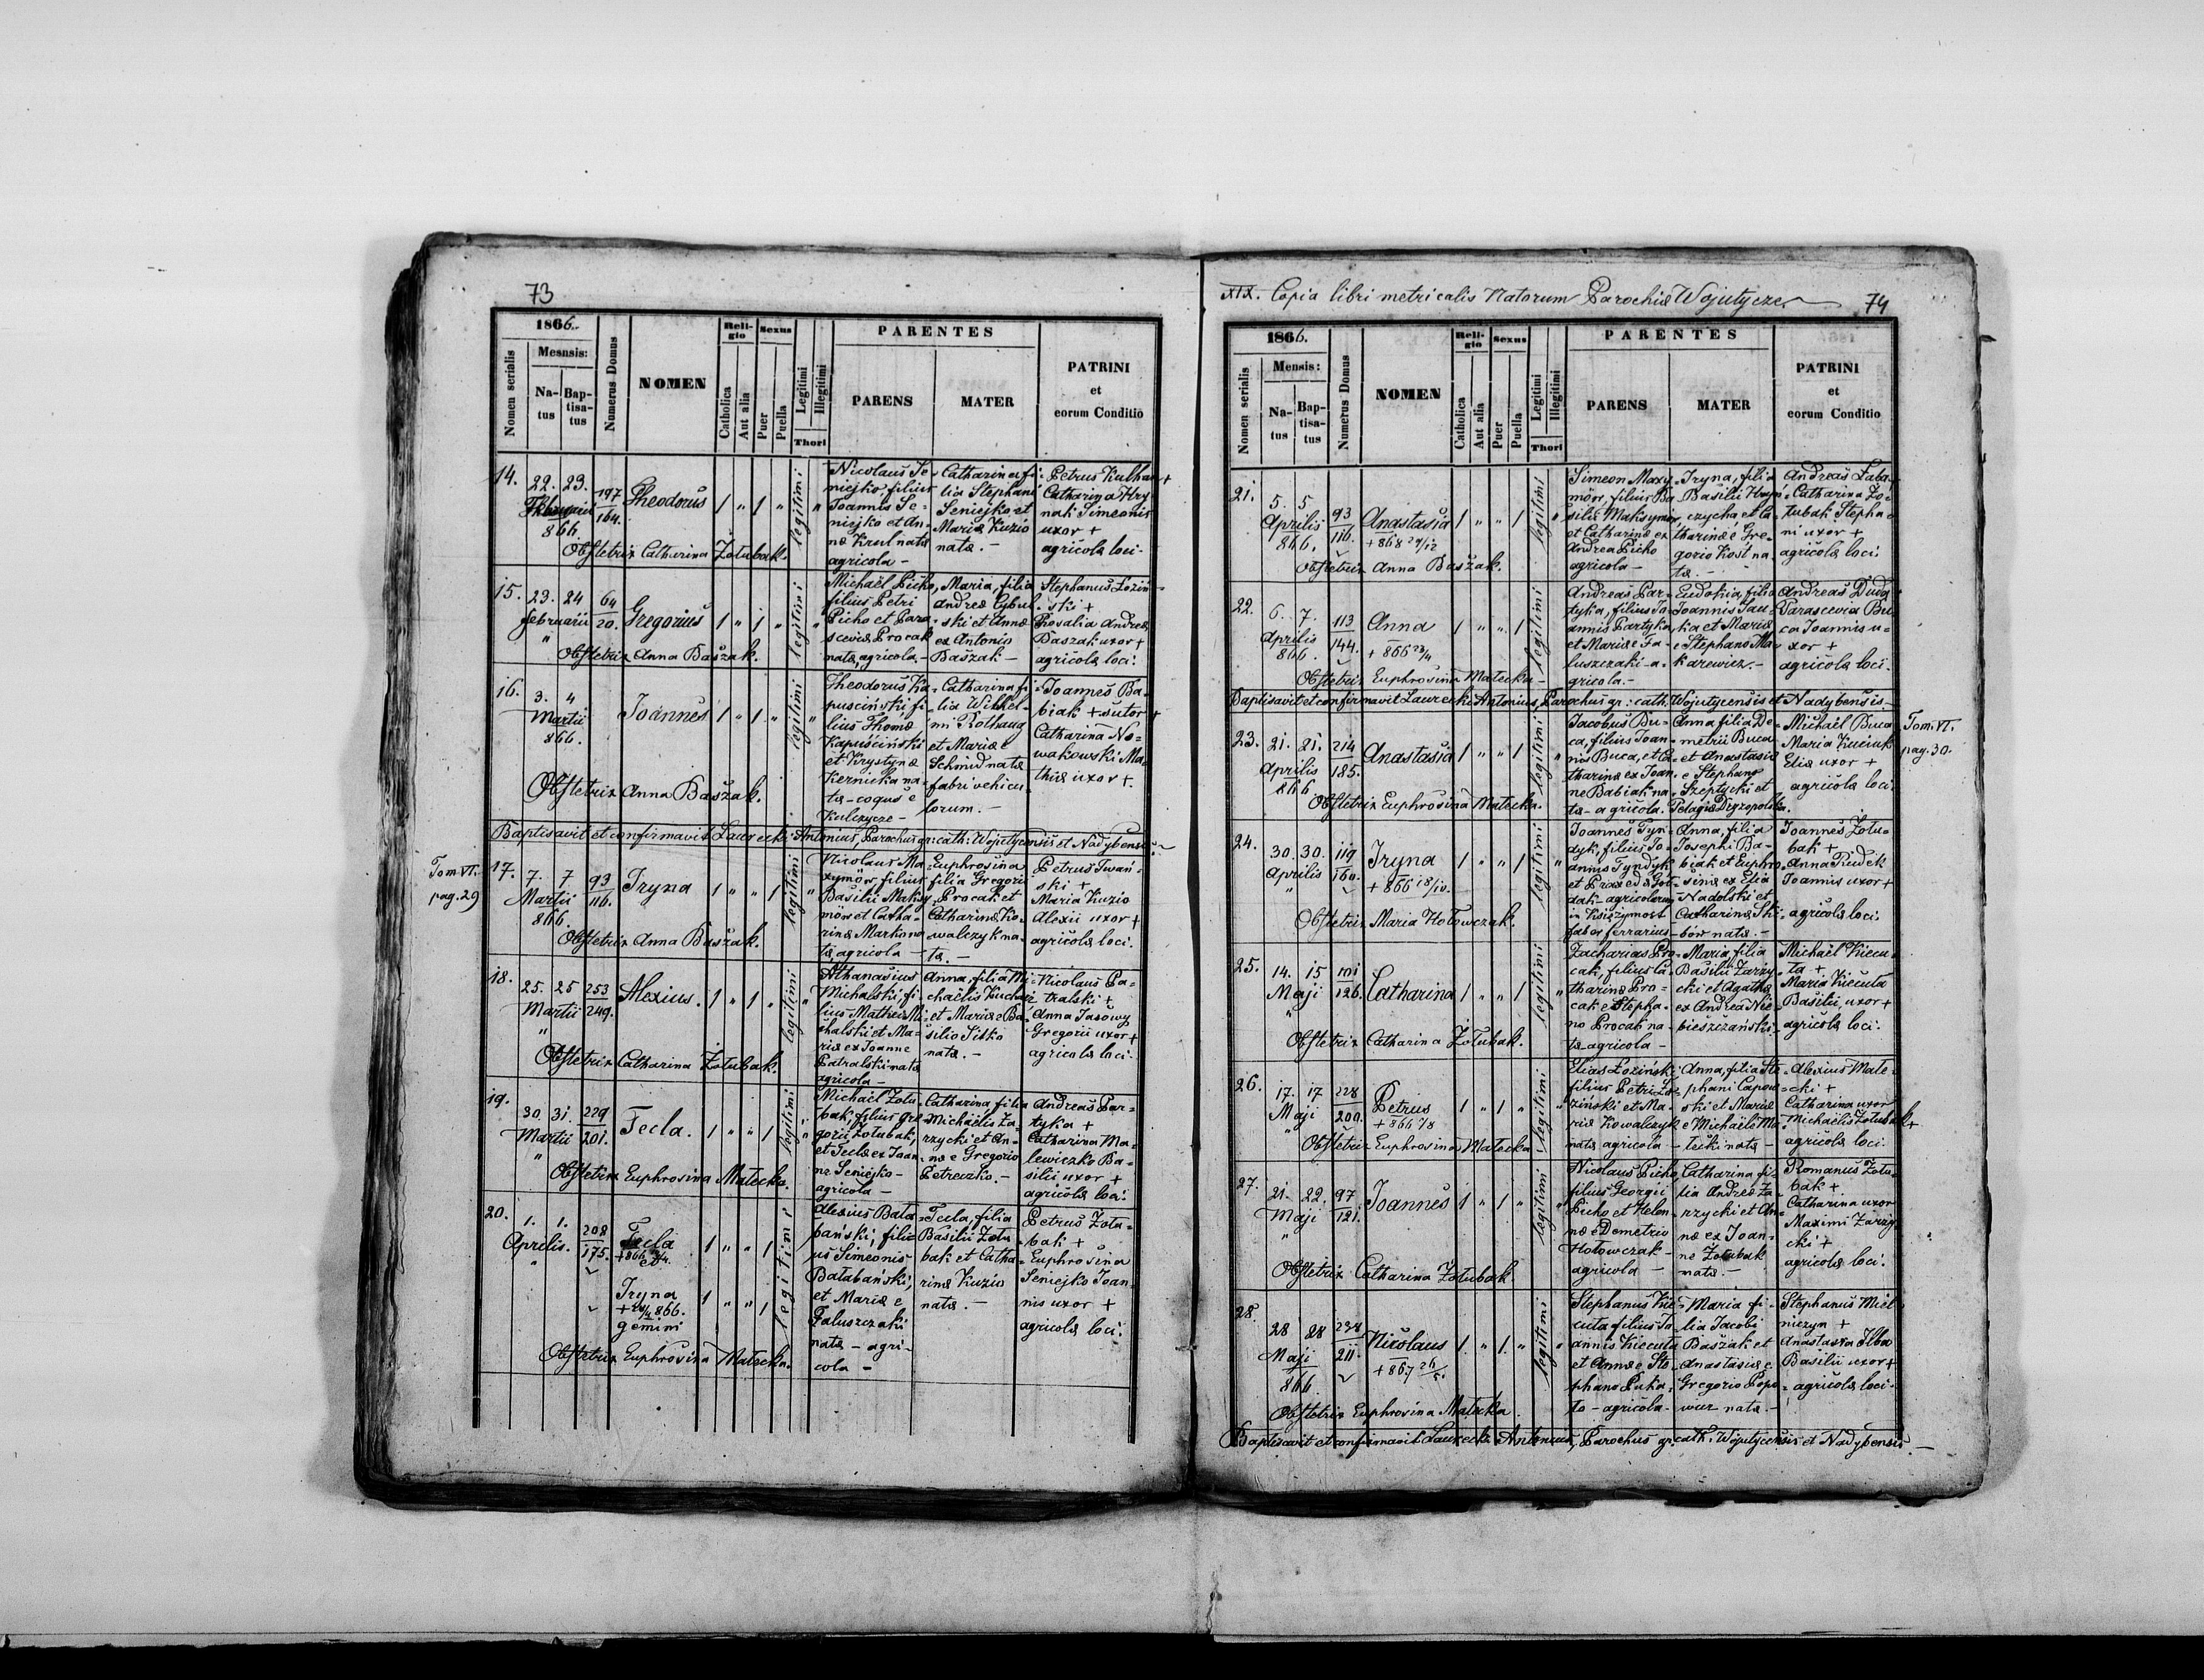 73
1866.
Nomen serialis
Mesnsis:
Na-
tus
Bap-
tisa-
tus
Numerus Domus
NOMEN
Reli-
gio
Catholica
Aut alia
Sexus
Puer
Puella
Legitimi
Illegitimi
Thori
PARENTES
PARENS
MATER
PATRINI
et
eorum Conditio
14.
22. 23.
Februarii
866.
197
164.
Theodorus
1 " 1 "
legitimi
Nicolaus Se-
niejko filius
Joannis Se-
niejko et An-
næ Krul natæ
agricola -
Catharina fi-
lia Stephani
Seniejko et
Mariæ Kuzio
natæ. -
Petrus Kulhan +
Catharina Hry
nak Simeonis
uxor +
agricolæ loci.
Obstetrix Catharina Zołubak.
15.
23. 24
februarii
"
64
20.
Gregorius
1 " 1 "
legitimi
Michaël Picho,
filius Petri
Picho et Para-
sceviæ Procak
natæ, agricola. -
Maria, filia
Andreæ Cybul
ski et Annæ
ex Antonio
Baszak -
Stephanus Łoziń-
ski +
Rosalia Andreæ
Baszak uxor +
agricolæ loci.
Obstetrix Anna Baszak.
16.
3. 4
Martii
866.
Joannes
1 " 1 "
legitimi
Theodorus Ka-
puściński fi-
lius Thomæ
Kapuściński
et Krystynæ
Kernicka na-
tæ - coquus e
Kulczyce -
Catharina fi-
lia Wilhel-
mi Rothaug
et Mariæ e
Schmid natæ
fabri vehicu-
lorum. -
Joannes Ba-
biak + sutor +
Catharina No-
wakowski Ma-
thiæ uxor +
Obstetrix Anna Baszak.
Baptisavit et confirmavit Laurecki Antonius, Parochus gr: cath: Wojutycensis et Nadybensis.
Tom VI.
pag. 29
17.
7. 7
Martii
866.
93
116.
Iryna
1 " " 1
legitimi
Nicolaus Ma-
xymów filius
Basilii Maksy
mów et Catha-
rinæ Marko na
tæ, agricola -
Euphrosina
filia Gregorii
Procak et
Catharinæ Ko-
walczyk na-
tæ. -
Petrus Iwań-
ski +
Maria Kuzio
Alexii uxor +
agricolæ loci.
Obstetrix Anna Baszak.
18.
25. 25
Martii
"
253
249.
Alexius.
1 " 1 "
legitimi
Athanasius
Michalski, fi-
lius Mathei Mi-
chalski et Ma-
riæ ex Joanne
Patralski natæ
agricola -
Anna, filia Mi-
chaëlis Kuchar
et Mariæ e Ba-
silio Sitko
natæ. -
Nicolaus Pa-
tralski +
Anna Jasowy
Gregorii uxor +
agricolæ loci.
Obstetrix Catharina Zołubak.
19.
30. 31.
Martii
"
229
201.
Tecla.
1 " " 1
legitimi
Michaël Zołu-
bak, filius Gre-
gorii Zołubak,
et Teclæ ex Joan-
ne Seniejko -
agricola -
Catharina filia
Michaëlis Za-
rzycki et An-
næ e Gregorio
Petreczko. -
Andreas Par-
tyka +
Catharina Ma-
lewiczko Ba-
silii uxor +
agricolæ loci.
Obstetrix Euphrosina Małecka.
20.
1. 1.
Aprilis.
"
208
175.
Tecla
et
Iryna
+ 866.
gemini
1 " " 1
1 " " 1
legitimi
Alexius Bała
bański, filius
Simeonis
Bałabański,
et Mariæ e
Faluszczaki
natæ - agri-
cola -
Tecla, filia
Basilii Zołu
bak et Catha-
rinæ Kuzio
natæ. -
Petrus Zołu-
bak +
Euphrosina
Seniejko Joan-
nis uxor +
agricolæ loci.
Obstetrix Euphrosina Małecka.
XIX. Copia libri metricalis Natorum Parochiæ Wojutycze.
74
1866.
Nomen serialis
Mensis:
Na-
tus
Bap-
tisa-
tus
Numerus Domus
NOMEN
Reli-
gio
Catholica
Aut alia
Sexus
Puer
Puella
Legitimi
Illegitimi
Thori
PARENTES
PARENS
MATER
PATRINI
et
eorum Conditio
21.
5. 5
Aprilis
866.
93
116.
Anastasia
+ 868 24/12
1 " " 1
legitimi
Simeon Maxy-
mów, filius Ba-
silii Maksymów,
et Catharinæ ex
Andrea Picho
agricola -
Iryna, filia
Basilii Hryn-
czycha et Ca-
tharinæ e Gre-
gorio Kost na-
tæ. -
Andreas Łaba +
Catharina Zo-
łubak Stepha-
ni uxor +
agricolæ loci
Obstetrix Anna Baszak.
22.
6. 7.
Aprilis
866.
113
144.
Anna
+ 866 23/4
1 " " 1
legitimi
Andreas Par-
tyka, filius Jo-
annis Partyka
et Mariæ e Fa-
luszczaki - a-
gricola. -
Eudokia, filia
Joannis Sau-
ka et Mariæ
e Stephano Ma-
karewicz. -
Andreas Duda
Parascevia Bu
ca Joannis u-
xor +
agricolæ loci.
Obstetrix Euphrosina Małecka -
Baptisavit et confirmavit Laurecki Antonius, Parochus gr: cath. Wojutycensis et Nadybensis. -
Tom. VI.
pag. 30.
23.
21. 21.
Aprilis
866
214
185.
Anastasia
1 " " 1
legitimi
Jacobus Bu-
ca, filius Joan-
nis Buca, et Ca-
tharinæ ex Joan-
ne Babiak na-
tæ - agricola.
Anna filia De-
metrii Buca
et Anastasiæ
e Stephano
Szeptycki et
Pelagiæ
Michaël Buca
Maria Kuciuk
Eliæ uxor +
agricolæ loci.
Obstetrix Euphrosina Małecka.
24.
30. 30.
Aprilis
"
119
160.
Iryna
+ 866 18/10.
1 " " 1
legitimi
Joannes Tyn-
dyk, filius Jo-
annis Tyndyk
et Praxedæ
agricolarum
in Księzymost
faber ferrarius -
Anna, filia
Josephi Ba-
biak et Euphro-
sinæ ex Elia
Nadolski et
Catharinæ Ski-
bów natæ. -
Joannes Zołu-
bak +
Anna Rudek
Joannis uxor +
agricolæ loci.
Obstetrix Maria Hołowczak.
25.
14. 15
Maji
"
101
126.
Catharina
1 " " 1
legitimi
Zacharias Pro-
cak, filius Ca-
tharinæ Pro-
cak e Stepha-
no Procak na-
tæ agricola -
Maria, filia
Basilii Zarzy-
cki et Agathæ
ex Andrea Nie-
bieszczański.
Michaël Kiecu-
ta +
Maria Kiecuta
Basilii, uxor +
agricolæ loci.
Obstetrix Catharina Zołubak.
26.
17. 17
Maji
"
228
200.
Petrus
+ 866 7/8
1 " 1 "
legitimi
Elias Łoziński
filius Petri Ło-
ziński et Ma-
riæ Kowalczyk
natæ agricola -
Anna, filia Ste-
phani Capow-
ski et Mariæ
e Michaële Ma-
łecki natæ -
Alexius Małe-
cki +
Catharina uxor
Michaëlis Zołubak +
agricolæ loci.
Obstetrix Euphrosina Małecka
27.
21. 22.
Maji
"
97
121.
Joannes
1 " 1 "
legitimi
Nicolaus Picho,
filius Georgii
Picho et Helen-
næ e Demetrio
Hołowczak -
agricola -
Catharina fi-
lia Andreæ Za-
rzycki et An-
næ ex Joan-
ne Zołubak
natæ. -
Romanus Zołu-
bak +
Catharina uxor
Maximi Zarzy-
cki +
agricolæ loci.
Obstetrix Catharina Zołubak.
28.
28 28
Maji
866
234
211.
Nicolaus
+ 867
1 " 1 "
legitimi
Stephanus Kie-
cuta filius Jo-
annis Kiecuta
et Annæ e Ste-
phano Puka,
agricola -
Maria fi-
lia Jacobi
Baszak et
Anastasiæ e
Gregorio Popo-
wicz natæ. -
Stephanus Miel
niczyn +
Anastasia Ilba
Basilii uxor +
agricolæ loci.
Obstetrix Euphrosina Małecka
Baptisavit et confirmavit Laurecki Antonius, Parochus gr. cath. Wojutycensis et Nadybensis. -